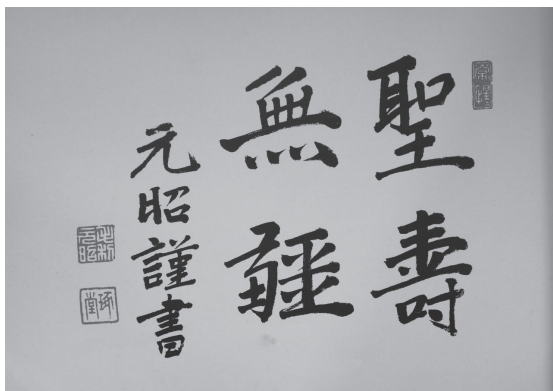 聖壽
無疆
元昭謹書